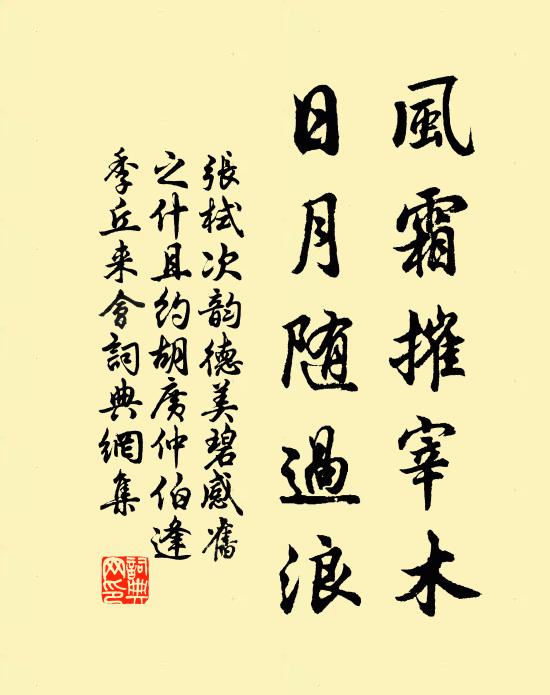 風霜摧宰木
日月随過浪
張栻次韵德美碧感舊
之什且約胡廣仲伯逢
季丘来會詞典網集
詞典网印